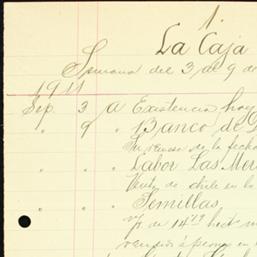 1.
La Caja
Semana del 3 al 9 de
1911
Sep. 3 A Existencia hoy
" 9 " Banco de
Su remesa de la fecha
" " " Labor Las
Venta de chile en la
" " " Semillas,
v/. de 14